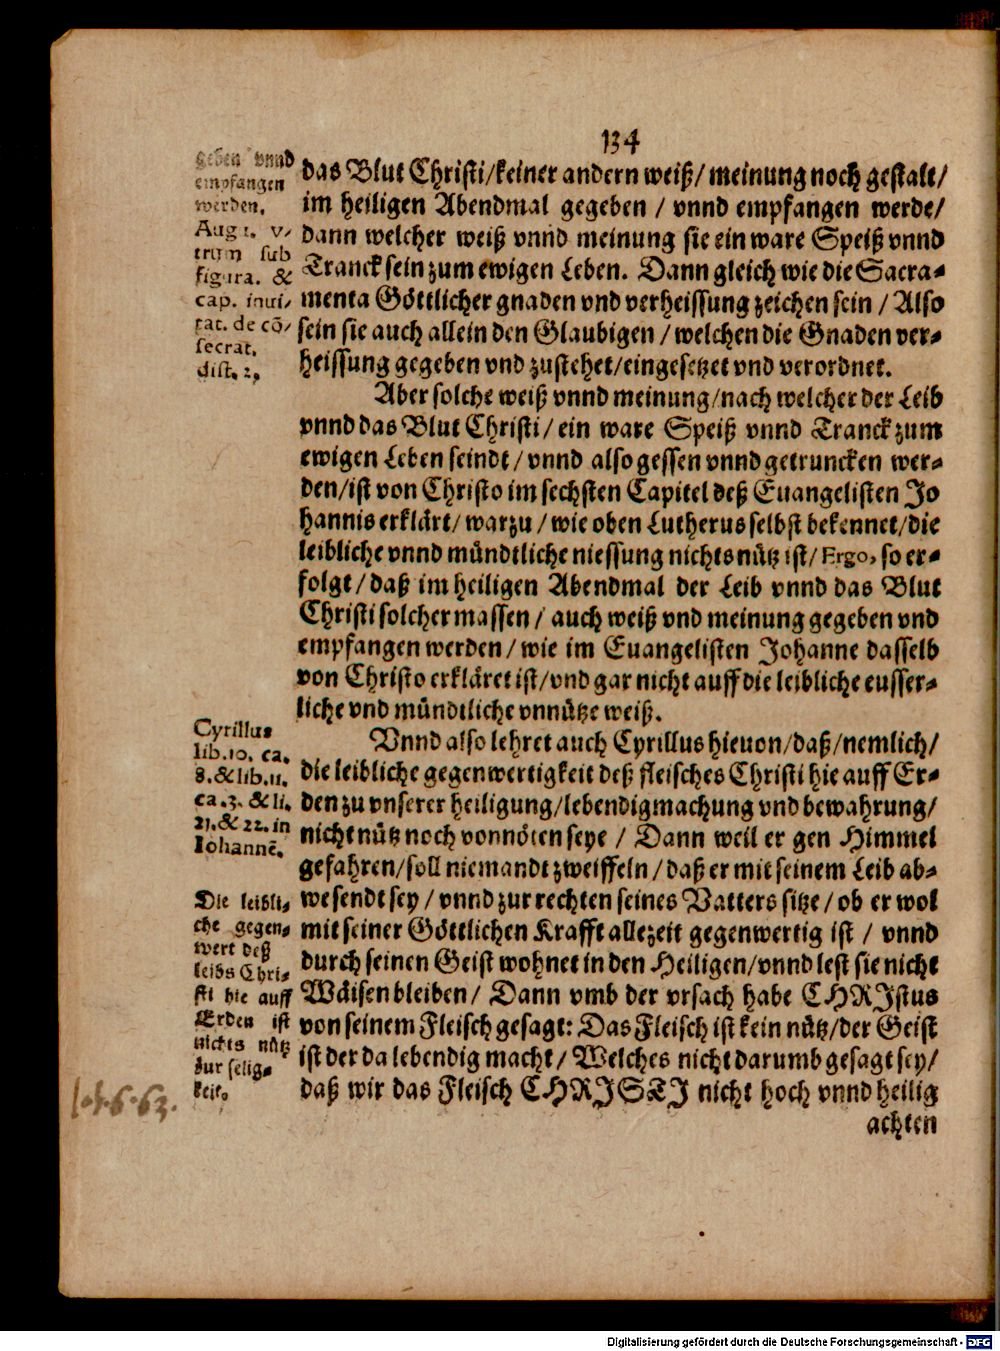 134
geben vnnd
empfangen
werden.
Aug
trum sub
figura. &
cap. inui-
tat. de cō-
secrat.
dist. 2.
das Blut Christi/keiner andern weiß/meinung noch gestalt/
im heiligen Abendmal gegeben / vnnd empfangen werde/
dann welcher weiß vnnd meinung sie ein ware Speiß vnnd
Tranck sein zum ewigen Leben. Dann gleich wie die Sacra-
menta Göttlicher gnaden vnd verheissung zeichen sein / Also
sein sie auch allein den Glaubigen / welchen die Gnaden ver-
heissung gegeben vnd zustehet/eingesetzet vnd verordnet.
Aber solche weiß vnnd meinung/nach welcher der Leib
vnnd das Blut Christi/ ein ware Speiß vnnd Tranck zum
ewigen Leben seindt/ vnnd also gessen vnnd getruncken wer-
den/ist von Christo im sechsten Capitel deß Euangelisten Jo
hannis erklärt/ warzu / wie oben Lutherus selbst bekennet/die
leibliche vnnd mündtliche niessung nichts nütz ist/ Ergo, so er-
folgt/ daß im heiligen Abendmal der Leib vnnd das Blut
Christi solcher massen / auch weiß vnd meinung gegeben vnd
empfangen werden/ wie im Euangelisten Johanne dasselb
von Christo erkläret ist/vnd gar nicht auff die leibliche eusser-
liche vnd mündtliche vnnütze weiß.
Cyrillus
lib. 10. ca.
8. & lib. 11.
ca. 3. & li.
21. & 22. in
Iohannē.
Vnnd also lehret auch Cyrillus hieuon/daß/nemlich/
die leibliche gegenwertigkeit deß fleisches Christi hie auff Er-
den zu vnserer heiligung/lebendigmachung vnd bewahrung/
nicht nütz noch vonnöten seye / Dann weil er gen Himmel
gefahren/soll niemandt zweiffeln/ daß er mit seinem Leib ab-
wesendt sey / vnnd zur rechten seines Vatters sitze/ ob er wol
mit seiner Göttlichen Krafft allezeit gegenwertig ist / vnnd
durch seinen Geist wohnet in den Heiligen/vnnd lest sie nicht
Wäisen bleiben/ Dann vmb der vrsach habe CHRIstus
von seinem Fleisch gesagt: Das Fleisch ist kein nütz/der Geist
ist der da lebendig macht/ Welches nicht darumb gesagt sey/
daß wir das Fleisch CHRISTI nicht hoch vnnd heilig
achten
Die leibli-
che gegen-
wert deß
leibs Chri-
sti hie auff
Erden ist
nichts nütz
zur selig-
keit.
6. 63.
Digitalisierung gefördert durch die Deutsche Forschungsgemeinschaft - DFG